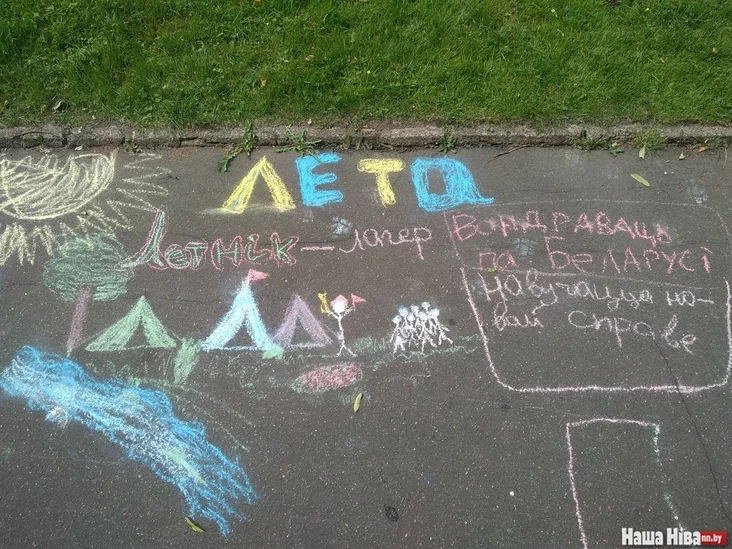 ЛЕТА
Летнік — лагер
Вандраваць
па Беларусі
Навучацца но-
вай справе
Наша Ніва nn.by